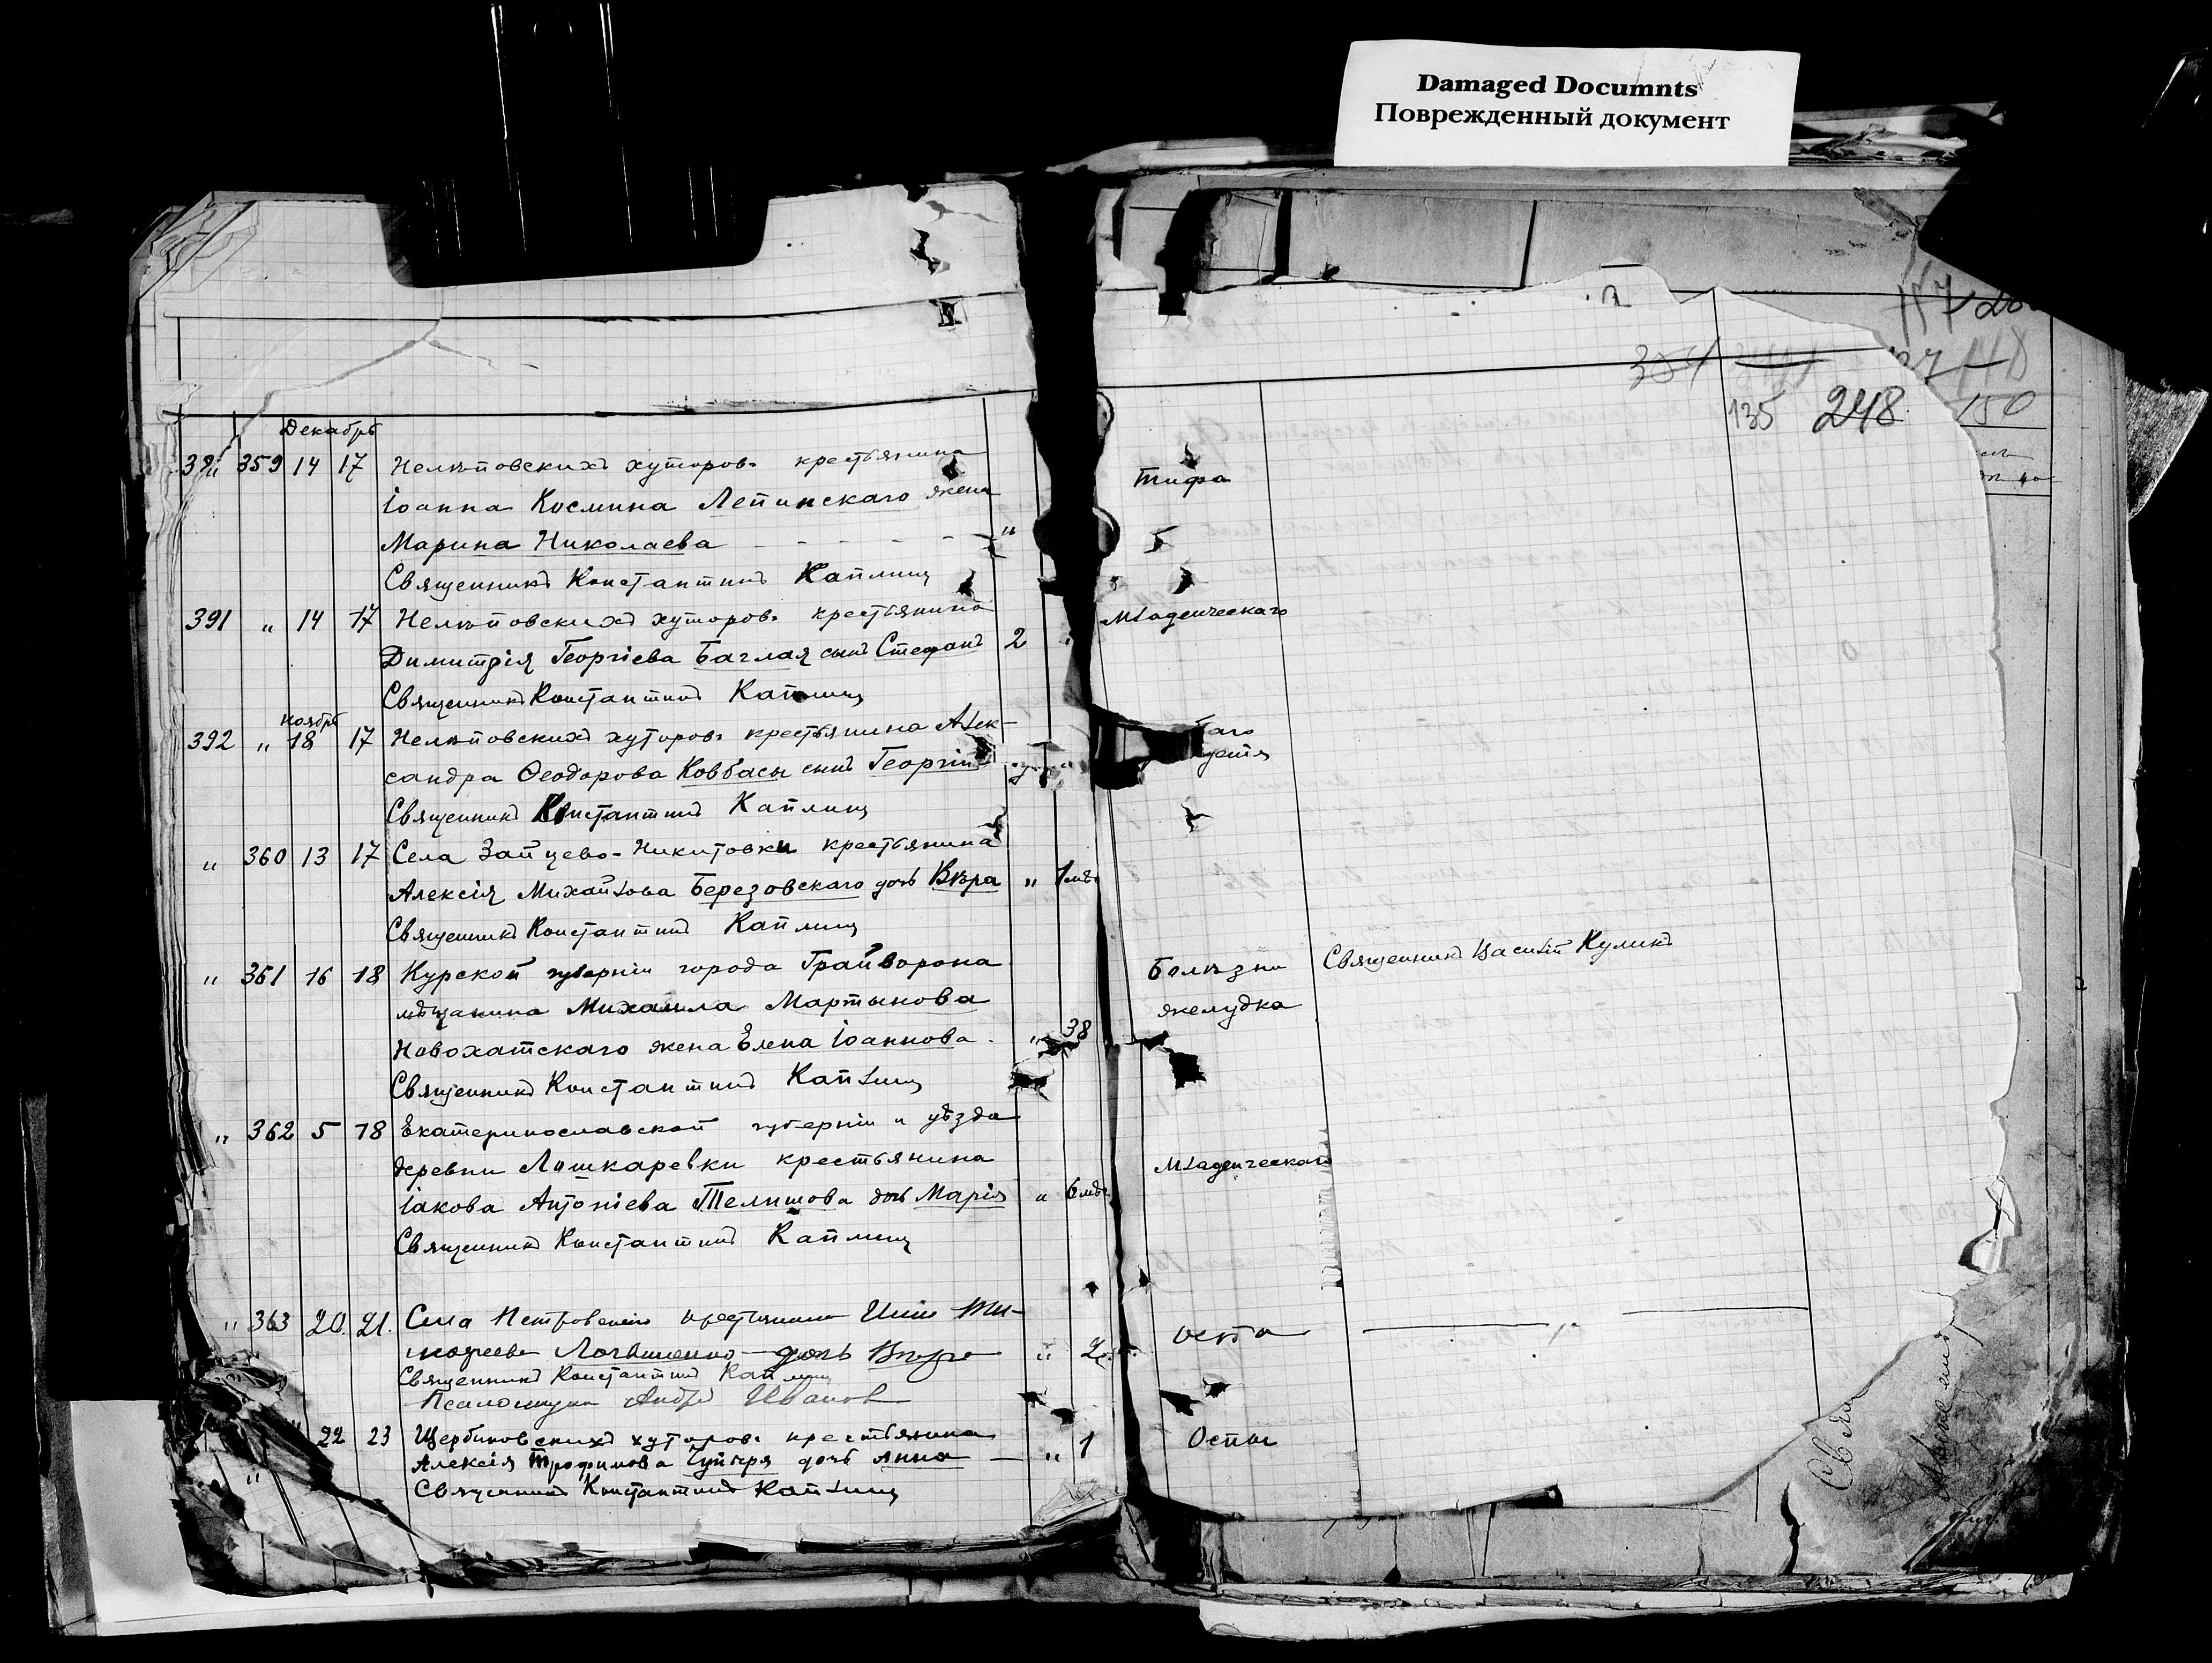 Damaged Documnts
Поврежденный документ
135 248
150
Декабрь
359 14 17 Нелѣповскихъ хуторовъ крестьянина
Іоанна Космина Лепинскаго жена
Марина Николаева - - - - - "
Священникъ Константинъ Каплинъ
Тифа
391 " 14 17 Нелѣповскихъ хуторовъ крестьянина
Димитрія Георгіева Баглая сынъ Стефанъ 2
Священникъ Константинъ Каплинъ
Младенческаго
ноября
392 " 18 17 Нелѣповскихъ хуторовъ крестьянина Алек-
сандра Ѳеодорова Ковбасы сынъ Георгій
Священникъ Константинъ Каплинъ
" 360 13 17 Села Зайцево-Никитовки крестьянина
Алексія Михайлова Березовскаго дочь Вѣра " 1 мѣс
Священникъ Константинъ Каплинъ
" 361 16 18 Курской губерніи города Грайворона
мѣщанина Михаила Мартынова
Новохатскаго жена Елена Іоаннова " 38
Священникъ Константинъ Каплинъ
Болѣзни
желудка
Священникъ Василій Куликъ
" 362 5 18 Екатеринославской губерніи и уѣзда
деревни Лошкаревки крестьянина
Іакова Антоніева Телишова дочь Марія " 6 мѣс
Священникъ Константинъ Каплинъ
Младенческаго
" 363 20 21 Села Петровскаго крестьянина
дочь Вѣра " 2
Священникъ Константинъ Каплинъ
Псаломщикъ Андрей Иванов
оспа
22 23 Щербиновскихъ хуторовъ крестьянина
Алексія Трофимова дочь Анна — " 1
Священникъ Константинъ Каплинъ
Оспы